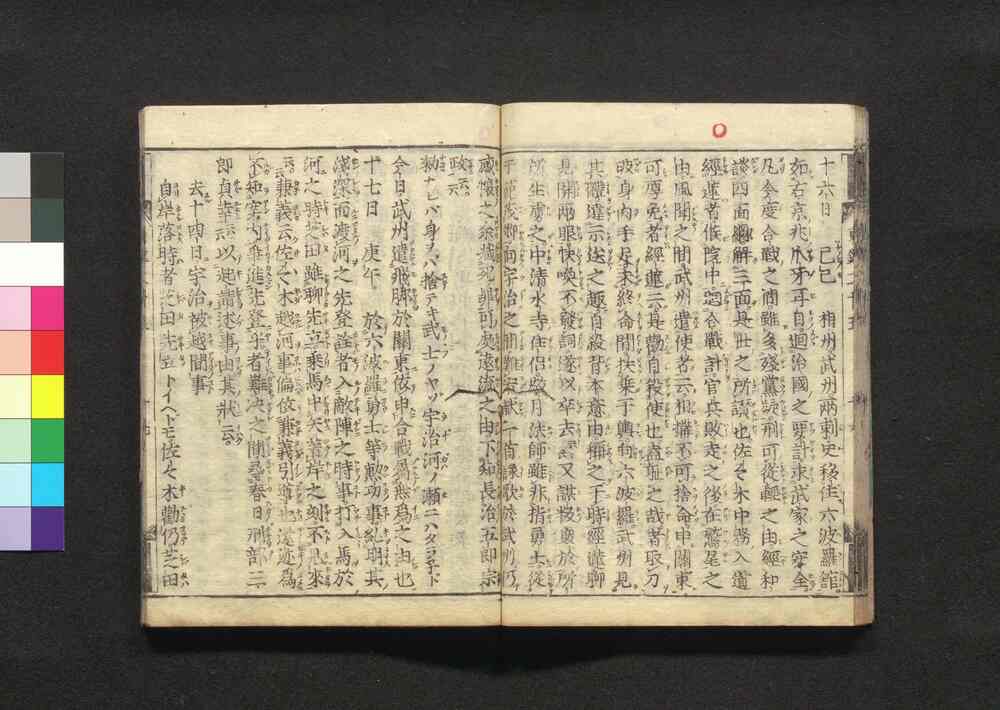 十六日 己巳 相州武州兩刺史移住六波羅館
如右京兆爪牙耳目廻治國之要計求武家之安全
凡今度合戰之間雖多殘黨疑刑可從輕之由經和
談四面網解三面是世之所讃也佐々木中務入道
經蓮者候院中廻合戰計官兵敗走之後在鷲尾之
由風聞之間武州遣使者云相搆不可捨命申關東
可厚免者經蓮云是勸自殺使也盍恥之哉者取刀
破身肉手足未終命間扶乗于輿向六波羅武州見
其體違示送之趣自殺背本意由稱之于時經蓮聊
見開兩眼快咲不發詞遂以卒去云又謀叛衆於所
所生虜之中清水寺住侶敬月法師雖非指勇士從
于範茂卿向宇治之間難宥獻一首詠歌於武州仍
感懷之餘減死罪可處遠流之由下知長沼五郎宗
政云
勅ナレハ身ヲハ捨テキ武士ノヤソ宇治河ノ瀬ニハタヽネト
今日武州遣飛脚於關東依申合戰爲無爲之由也
十七日 庚午 於六波羅勇士等勲功事糺明其
淺深而渡河之先登詮者入敵陣之時事打入馬於
河之時芝田雖聊先立乗馬中矢著岸之刻不見來
云兼義云佐々木越河事偏依兼義引導也遲迹爲
不知案内爭進先登乎者難決之間尋春日刑部三
郎貞幸云以起請述事由其狀云
去十四日宇治被越間事
自岸落時者芝田先立トイヘトモ佐々木勸仍芝田